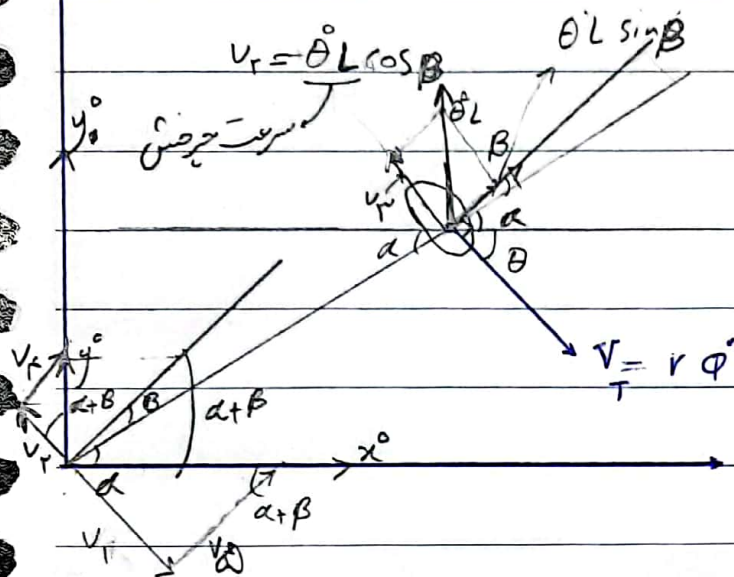 v۲ = θ° L cos β
θ° L sin β
سرعت چرخش
y°
θ°L
β
v۳
α
α
θ
V_T = r φ°
v۴
y°
α+β
β
α+β
v۲
α
x°
α+β
v۱
v۵